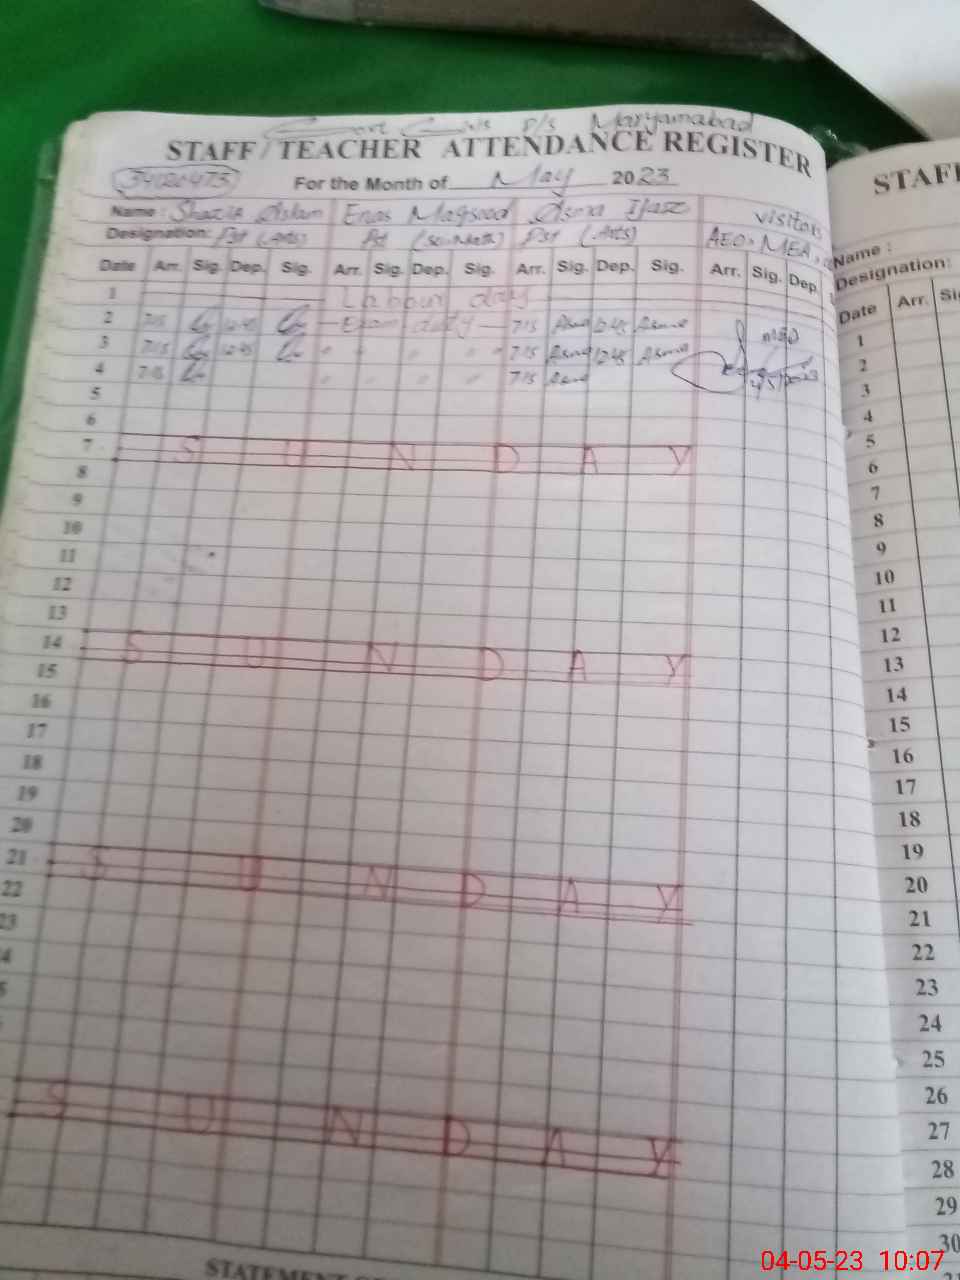 Govt Girls P/S Maryamabad
STAFF / TEACHER ATTENDANCE REGISTER
34120473
For the Month of May 2023
Name: Shazia Aslam Enas Maqsood Asma Ijaz visitors
Designation: Pst (Arts) Pst (Sci-Math) Pst (Arts) AEO, MEA,
Date Arr. Sig. Dep. Sig. Arr. Sig. Dep. Sig. Arr. Sig. Dep. Sig. Arr. Sig. Dep.
1 Labour day
2 7:15 12:45 Exam duty 7:15 Asma 12:45 Asma
3 7:15 12:45 " " " " 7:15 Asma 12:45 Asma
4 7:15 " " " " 7:15 Asma
5
6
7 SUNDAY
8
9
10
11
12
13
14 SUNDAY
15
16
17
18
19
20
21 SUNDAY
22
23
SUNDAY
STATEMENT
STAFF
Name :
Designation:
Date Arr. Si
1
2
3
4
5
6
7
8
9
10
11
12
13
14
15
16
17
18
19
20
21
22
23
24
25
26
27
28
29
30
04-05-23 10:07